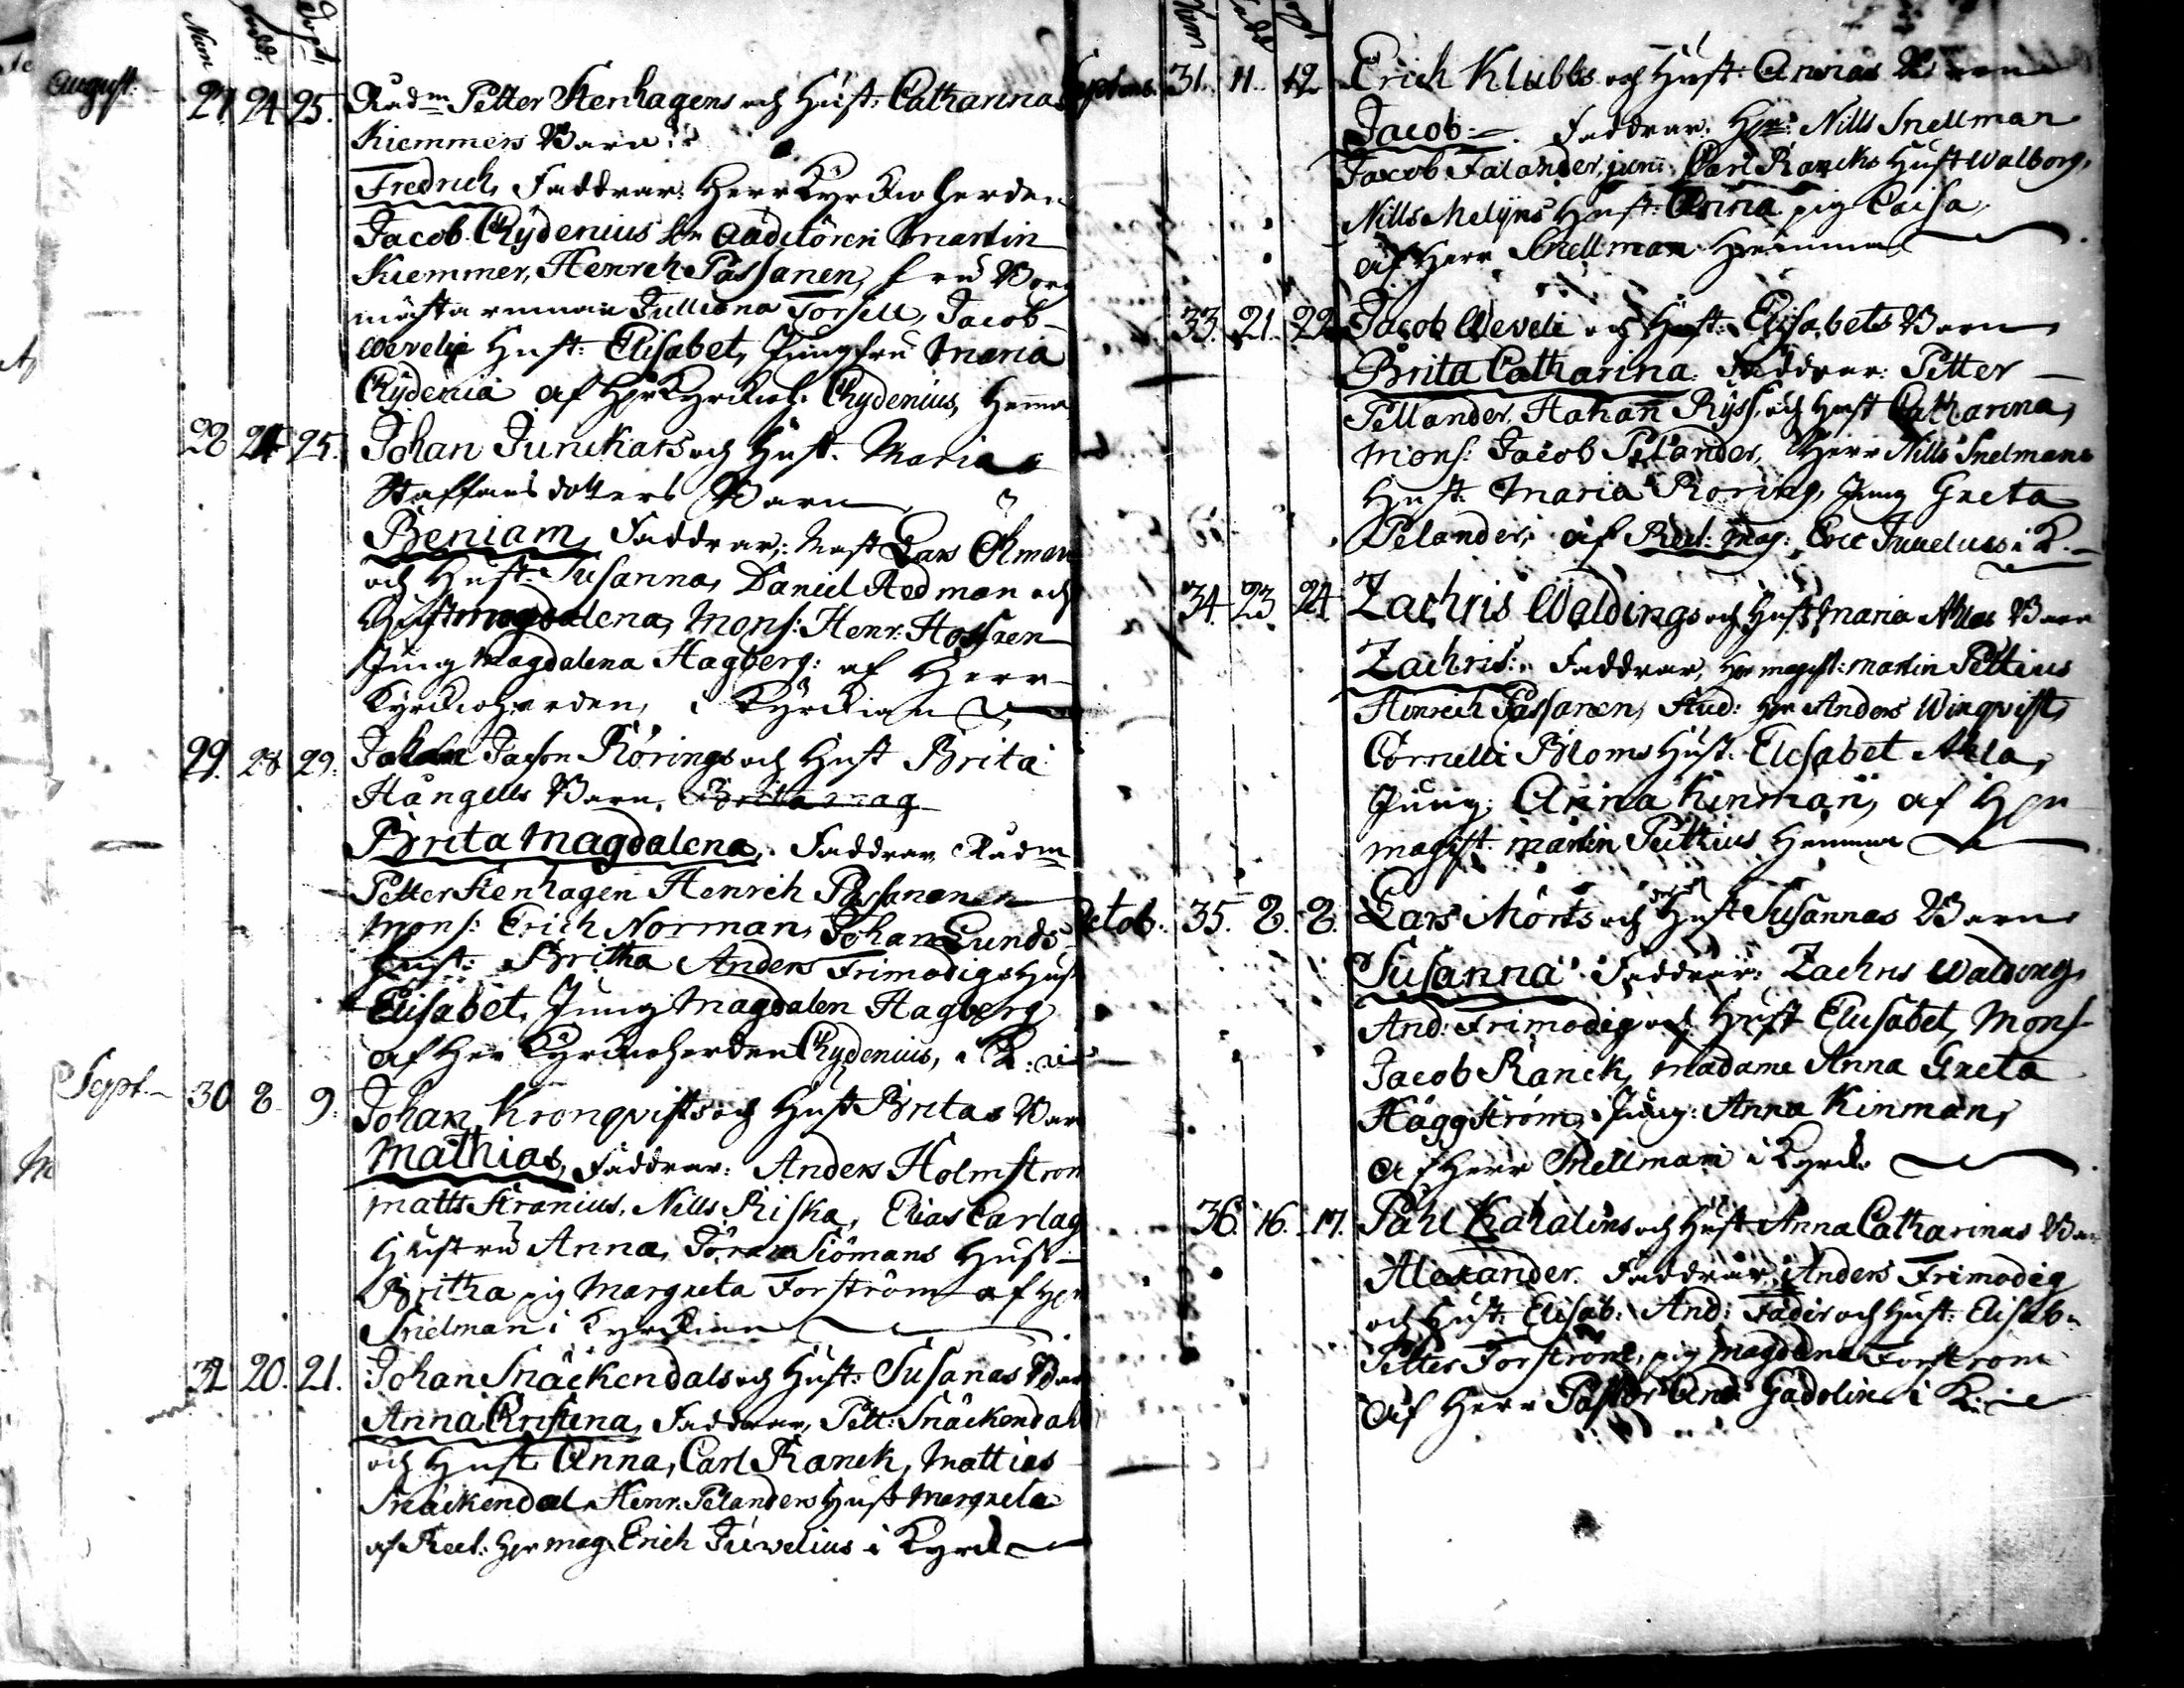 Num Född: Döpt:
August. 27. 24 25. Rådm Petter Stenhagens och Hust: Catharina
Kiemmers Barn
Fredrich, Faddrar: Herr Kyrckioherden
Jacob Chydenius Hr Auditören Martin
Kiemmer, Henrch Passanen, fru Borg
mästarinnan Julliana Forsell, Jacob
Wevelis Hust: Elisabet, Jungfru Maria
Chydenia af Hr Kyrckioh: Chydenius, Hema
28 24 25. Johan Junckars och Hust. Maria
Staffansdotters Barn
Beniam, Faddrar: Mast Lars Öhman
och Hust: Susanna, Daniel Hedman och
Hust Magdalena, Mons: Henr:
Jung Magdalena Hagberg: af Herr
Kyrckioherden, i Kyrckian
29. 28 29. Johan Jacson Rörings och Hust Brita
Hångells Barn, Brita mag
Brita Magdalena, Faddrar Rådm
Petter Stenhagen Henrich Passanen
Mons: Erich Norman, Johan Lunds
Hust: Britha Anders Frimodigs Hust
Elisabet, Jung Magdalen Hagberg
af Herr Kyrckioherden Chydenius, i K:
Sept. 30 8 9. Johan Kronqvists och Hust Britas Bar
Mathias, Faddrar: Anders Holmstrom
Matts Kranius, Nills Riska, Elias Carlag
Hustru Anna, Jöran Siömans Hust
Britha pig Margreta Forström af Hr
Snelman i Kyrckian
32 20. 21. Johan Snäckendals och Hust: Susanas Bar
Anna Cristina, Faddrar, Pett: Snäckendahl
och Hust Anna, Carl Ranck, Mattias
Snäckendal, Henr. Pelanders Hust Margreta
af Rect: Hr Mag Erich Juvelius i Kyrck
Num Född Döpt
Septemb. 31. 11. 12. Erich Klubbs och Hust: Annas Barn
Jacob: Faddrar, Hr: Nills Snellman
Jacob Falander, juni: Carl Rancks Hust Walborg,
Nills Melijns Hust: Anna pig Caisa
af Herr Snellman Hemma
33. 21. 22 Jacob Weveli och Hust: Elisabets Barn
Brita Catharina. Faddrar: Petter
Pellander, Hahan Ryss, och Hust Catharina,
Mons: Jacob Pelander, Herr Nills Snelmans
Hust. Maria Roring, Jung Greta
Pelander, af Rect: Mag: Eric Juvelius i K.
34. 23. 24 Zachris Waldings och Hust Maria Ahlas Barn
Zachris: Faddrar, Hr magist: Martin Pettius
Hinrich Passanen, Stud: Hr Anders Winqvist,
Cornelli Bloms Hust. Elisabet Ahla,
Jung: Anna Kinman, af Hr
Magist Martin Peithius Hemma
Octob. 35. 8. 8. Lars Mörts och Hust Susannas Barn
Susanna Faddrar: Zachris Walding
And: Frimodig och Hust Elisabet, Mons
Jacob Ranck, Madame Anna Greta
Häggström, Jung: Anna Kinman,
af Herr Snellman i Kyrck
36. 16. 17. Påhl Kahalins och Hust Anna Catharinas Ba
Alexander. Faddrar: Anders Frimodig
och Hust: Elisab: And: Fader och Hust: Elisab
Petter Forström, pig Magdena Forstrom
af Herr Pastor And: Gadolin i K: